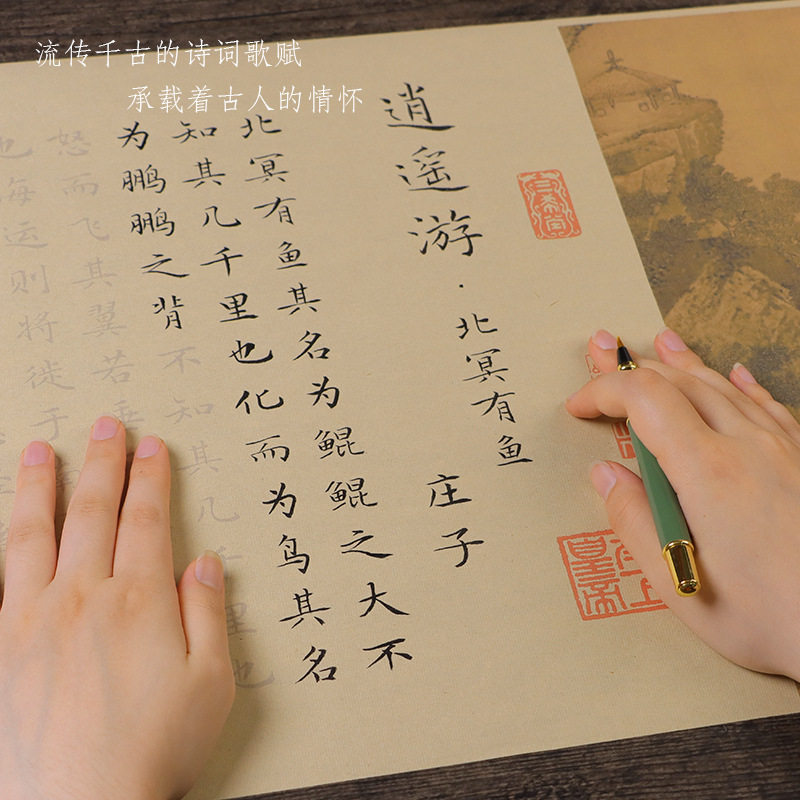 流传千古的诗词歌赋
承载着古人的情怀
三希堂
逍遥游·北冥有鱼
庄子
北冥有鱼其名为鲲鲲之大不
知其几千里也化而为鸟其名
为鹏鹏之背不知其几千里也
怒而飞其翼若垂
也海运则将徙于